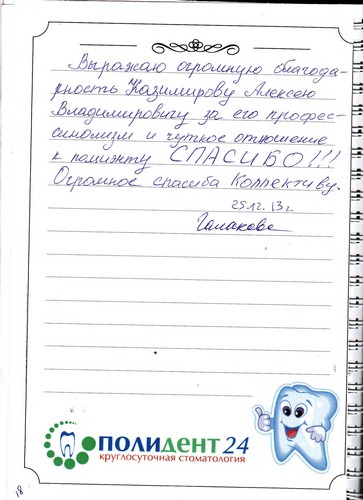 Выражаю огромную благода-
рность Казимирову Алексею
Владимировичу за его профес-
сионолизм и чуткое отношение
к пациэнту СПАСИБО!!!
Огромное спасиба Коллективу.
25.12.13г
Галакова
ПОЛИДЕНТ 24
круглосуточная стоматология
18